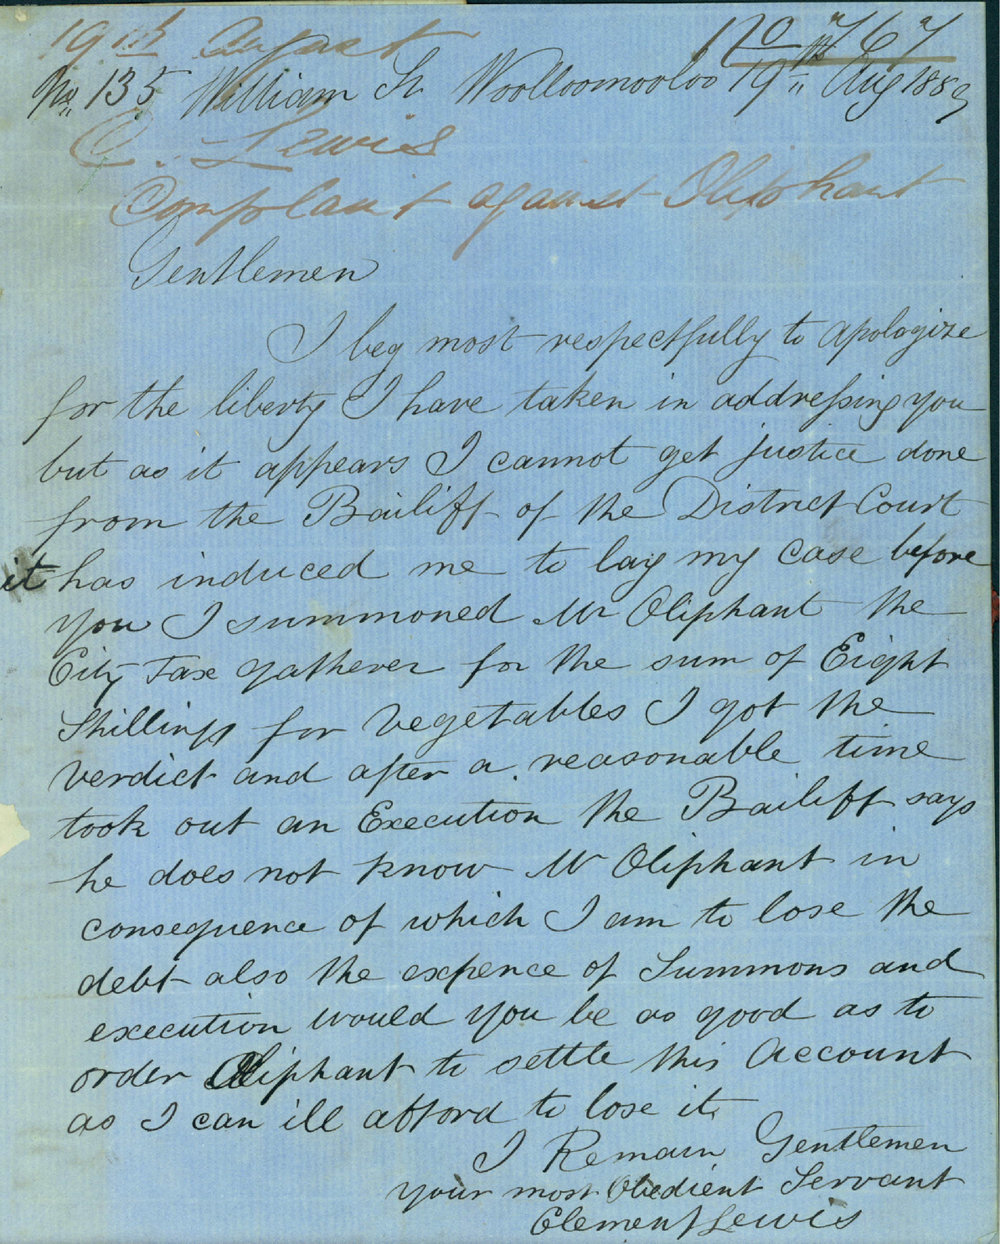 19th August No 767
No 135 William St Woolloomooloo 19th Aug 1889
C. Lewis
Complaint against Oliphant
Gentlemen
I beg most respectfully to apologize
for the liberty I have taken in addressing you
but as it appears I cannot get justice done
from the Bailiff of the District Court
it has induced me to lay my case before
you I summoned Mr Oliphant the
City Tax gatherer for the sum of Eight
Shillings for vegetables I got the
verdict and after a reasonable time
took out an Execution the Bailiff says
he does not know Mr Oliphant in
consequence of which I am to lose the
debt also the expence of Summons and
execution would you be as good as to
order Oliphant to settle this Account
as I can ill afford to lose it
I Remain Gentlemen
your most Obedient Servant
Clement Lewis